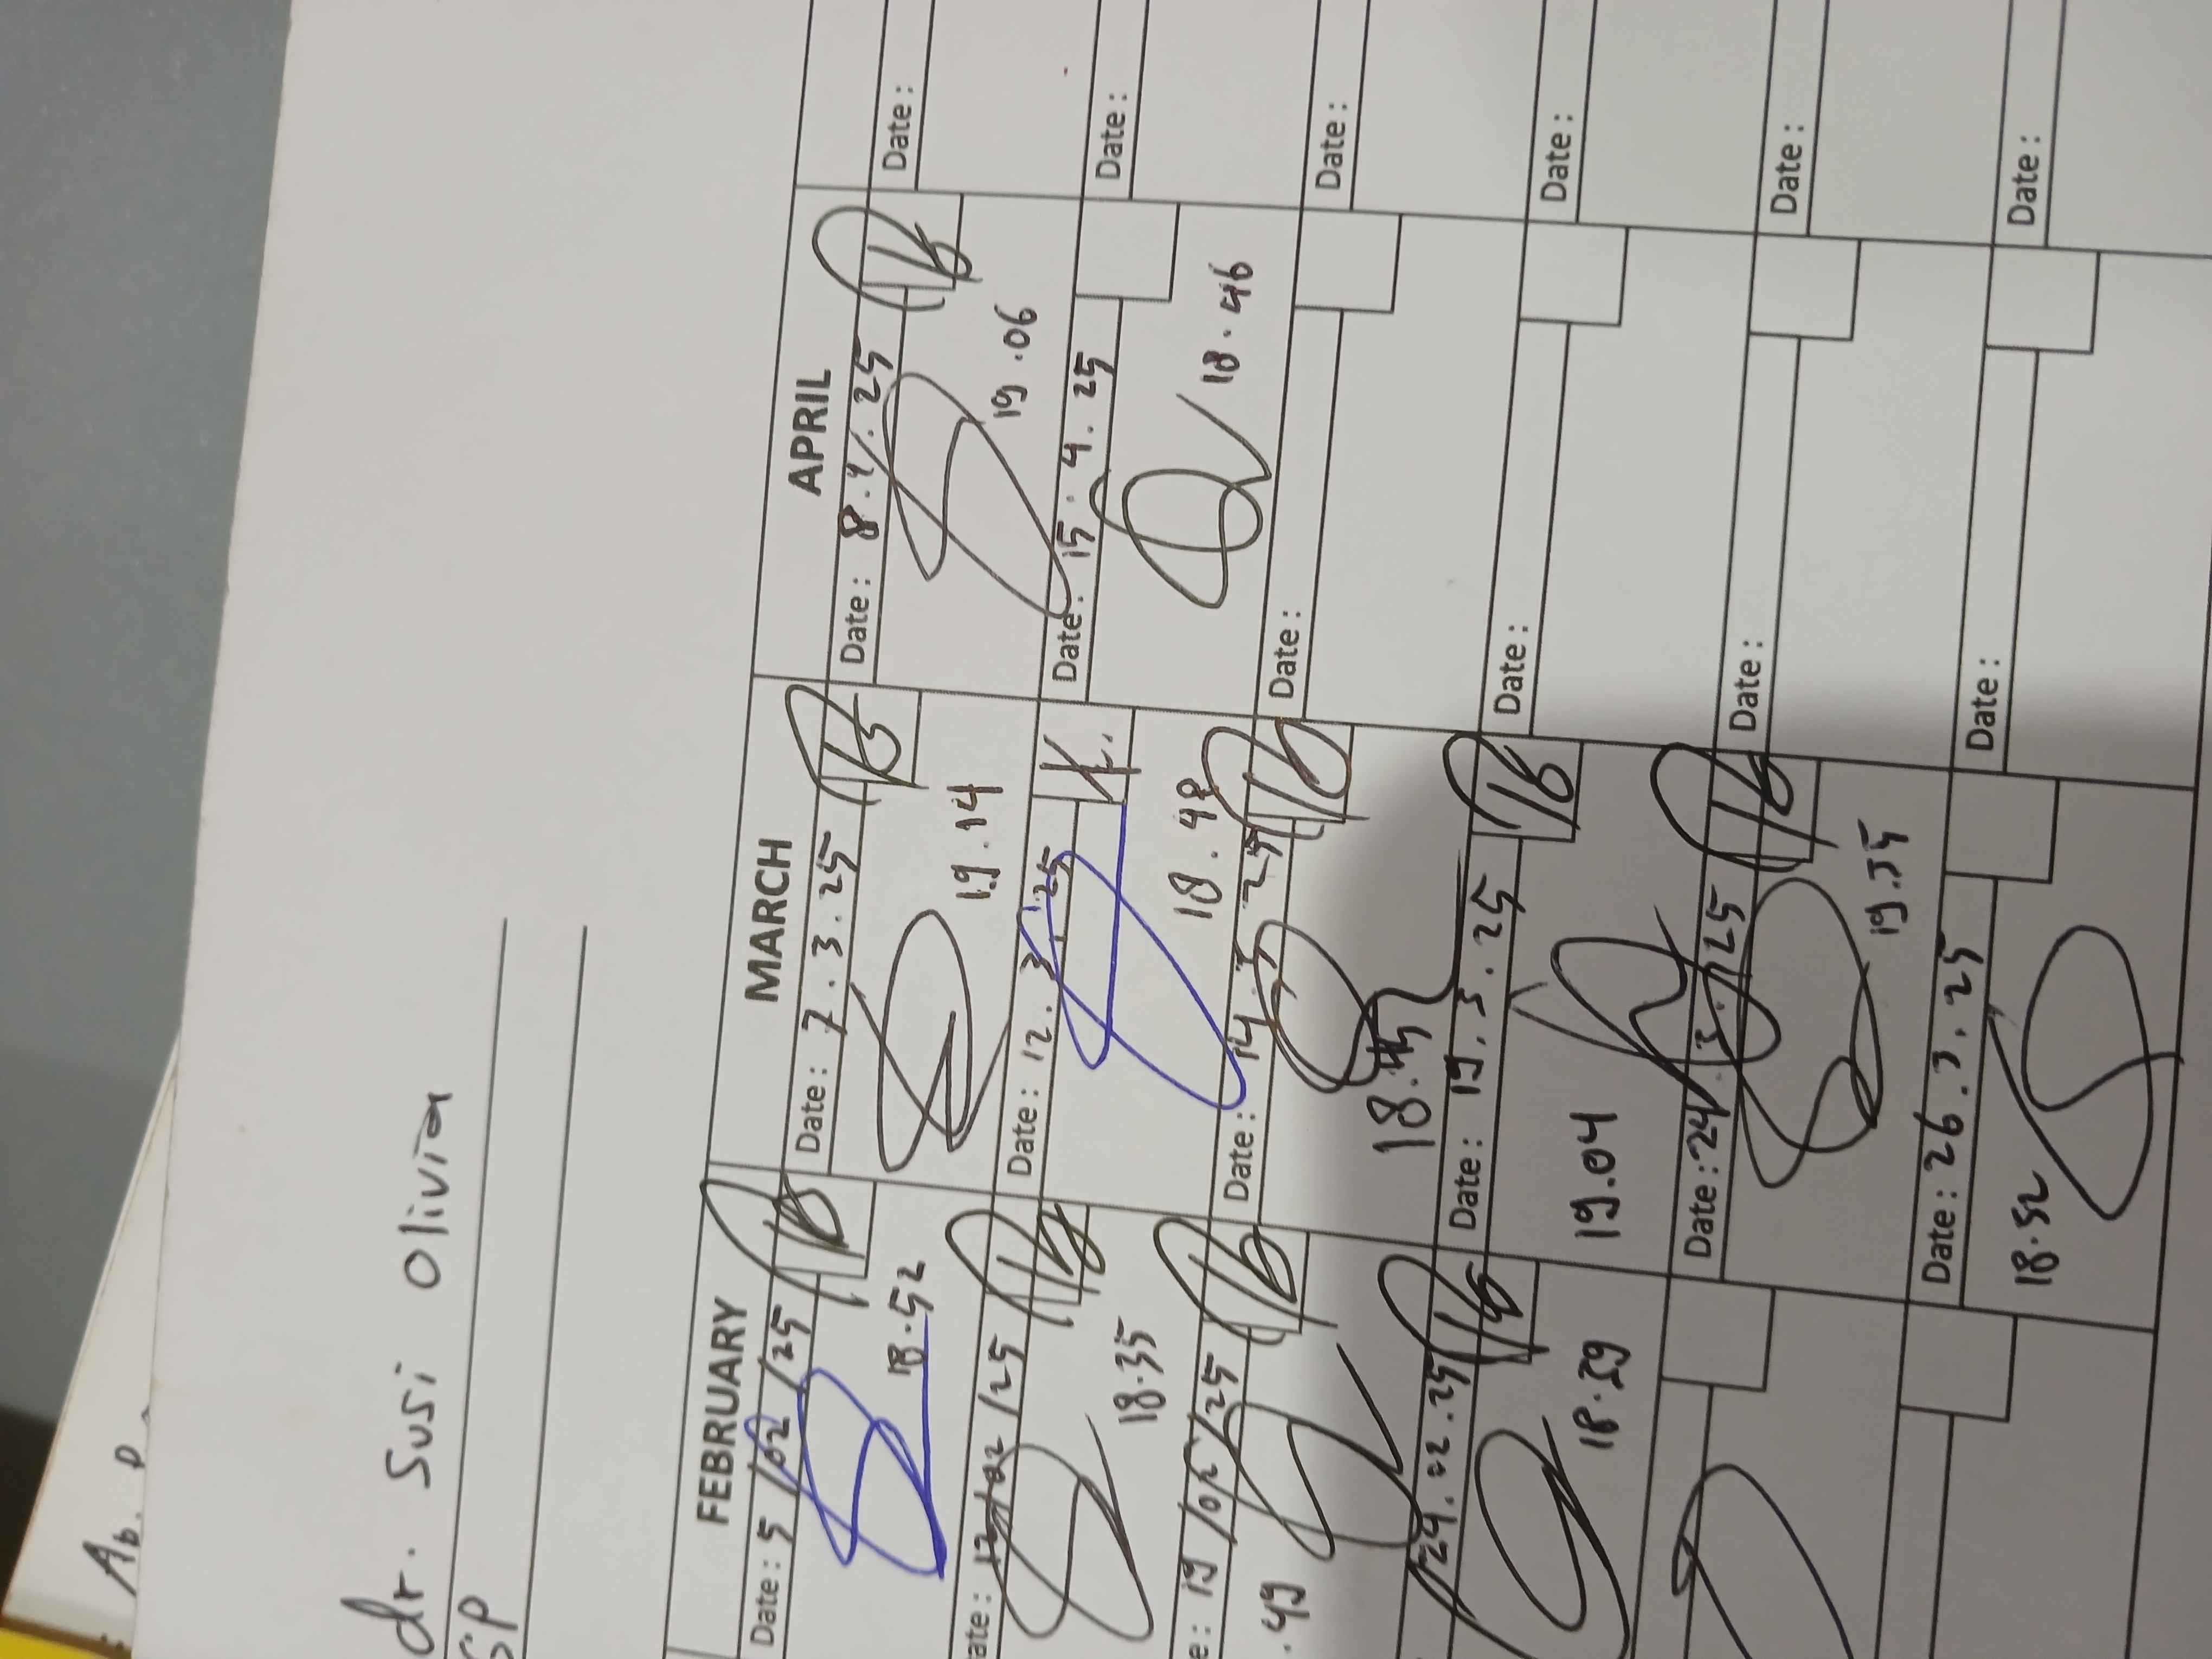 Ab. P
dr. Susi Olivia
SP
FEBRUARY MARCH APRIL
Date: 5/02/25
18.52
Date: 7.3.25
19.14
Date: 8.4.25
19.06
Date:
ate: 12/02/25
18.35
Date: 12.3.25
18.48
Date: 15.4.25
18.46
Date:
e: 19/02/25
.49
Date: 14 3 25
18.45
Date:
Date:
24.02.25
18.39
Date: 19.3.25
19.04
Date:
Date:
Date: 24/3/25
19.35
Date:
Date:
Date: 26.3.25
18.52
Date:
Date: